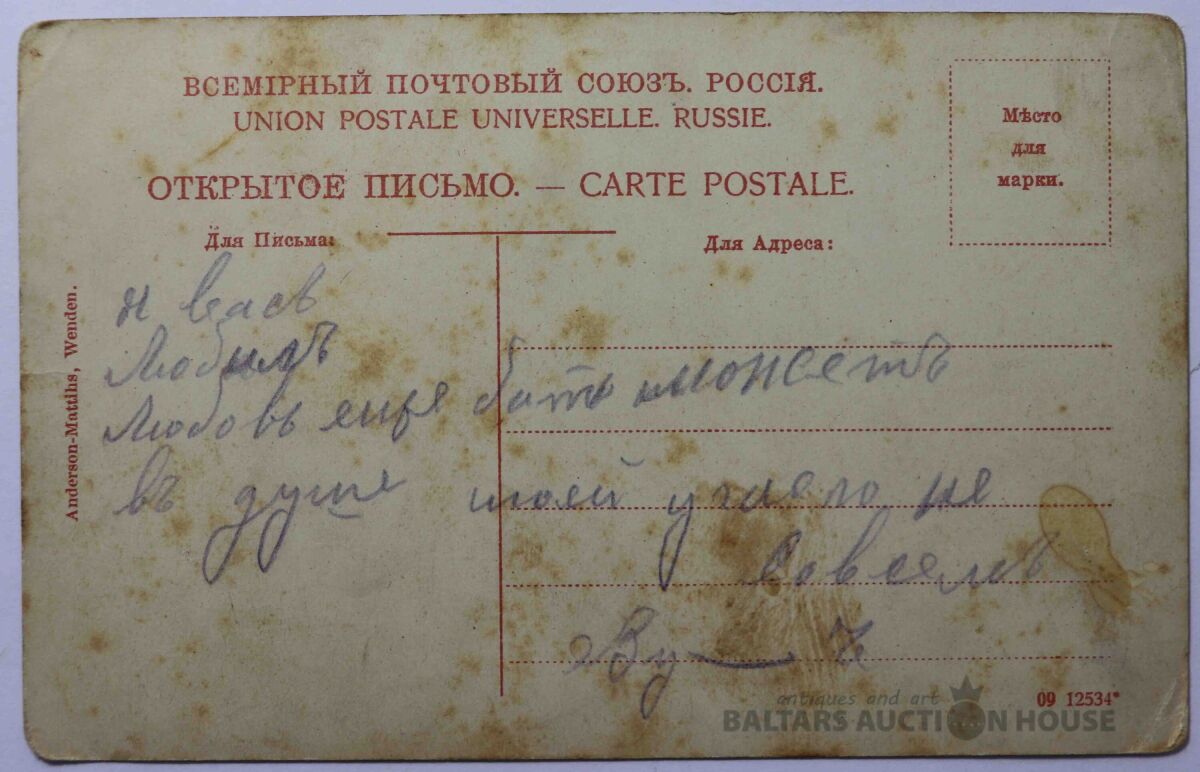 ВСЕМІРНЫЙ ПОЧТОВЫЙ СОЮЗЪ. РОССІЯ.
UNION POSTALE UNIVERSELLE. RUSSIE.
ОТКРЫТОЕ ПИСЬМО. — CARTE POSTALE.
Мѣсто
для
марки.
Для Письма:
Для Адреса:
Anderson-Matthis, Wenden.
я васъ
Любилъ
Любовь еще быть можетъ
въ душе моей угасло не
совсемъ
09 12534*
antiques and art
BALTARS AUCTION HOUSE